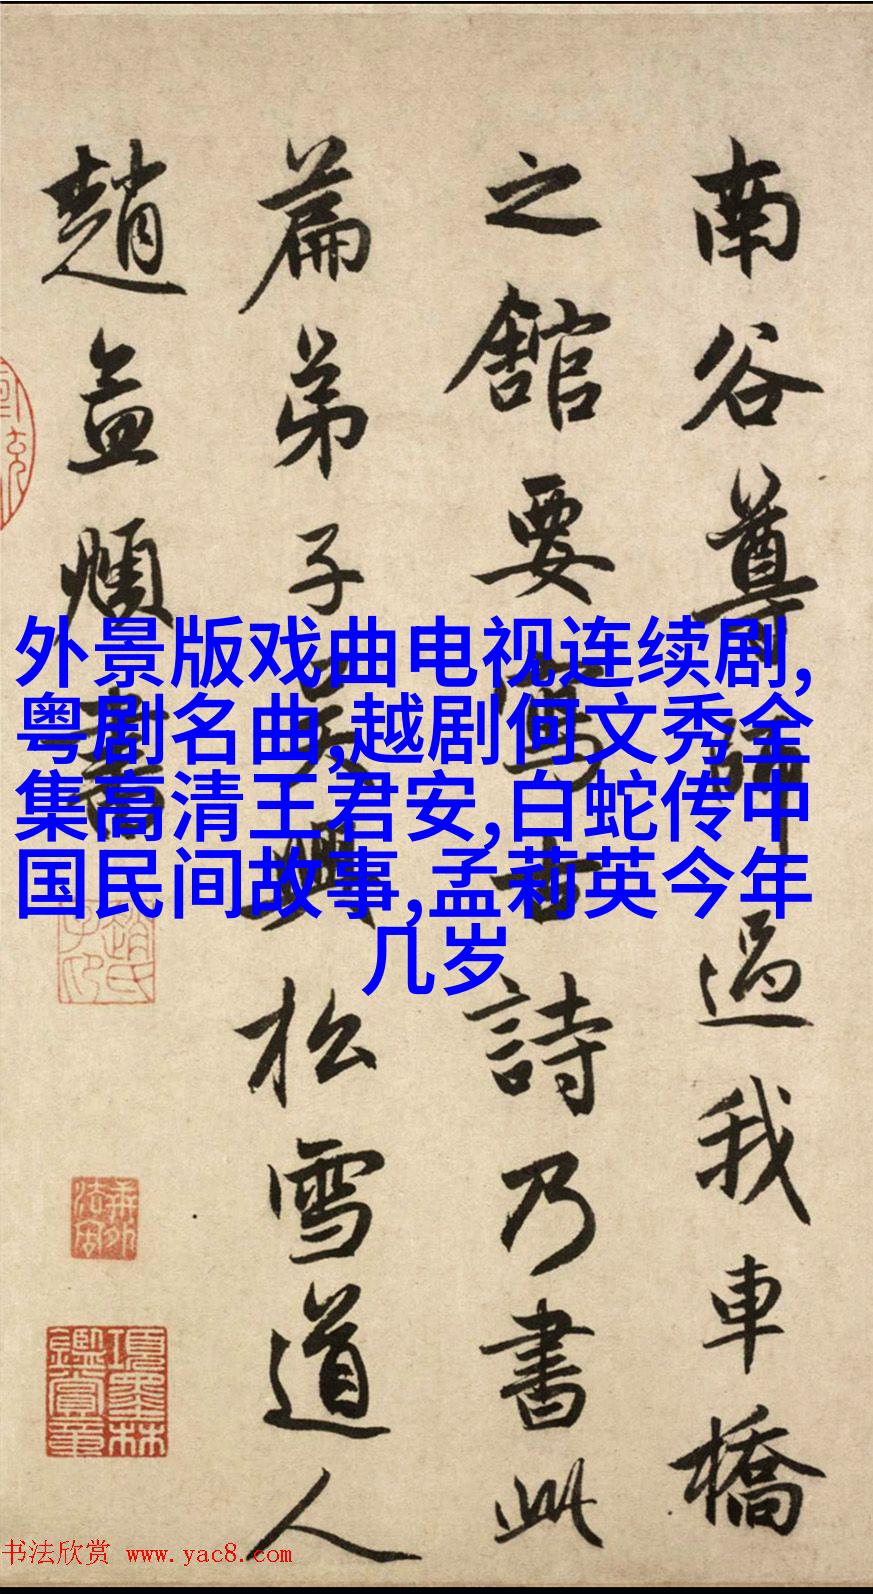 南谷尊師過我車橋
之館要寫古詩乃書此
篇弟子吳興松雪道人
趙孟頫書
外景版戏曲电视连续剧,
粤剧名曲,越剧何文秀全
集高清王君安,白蛇传中
国民间故事,孟莉英今年
几岁
趙氏子昂
項墨林鑑賞章
书法欣赏 www.yac8.com